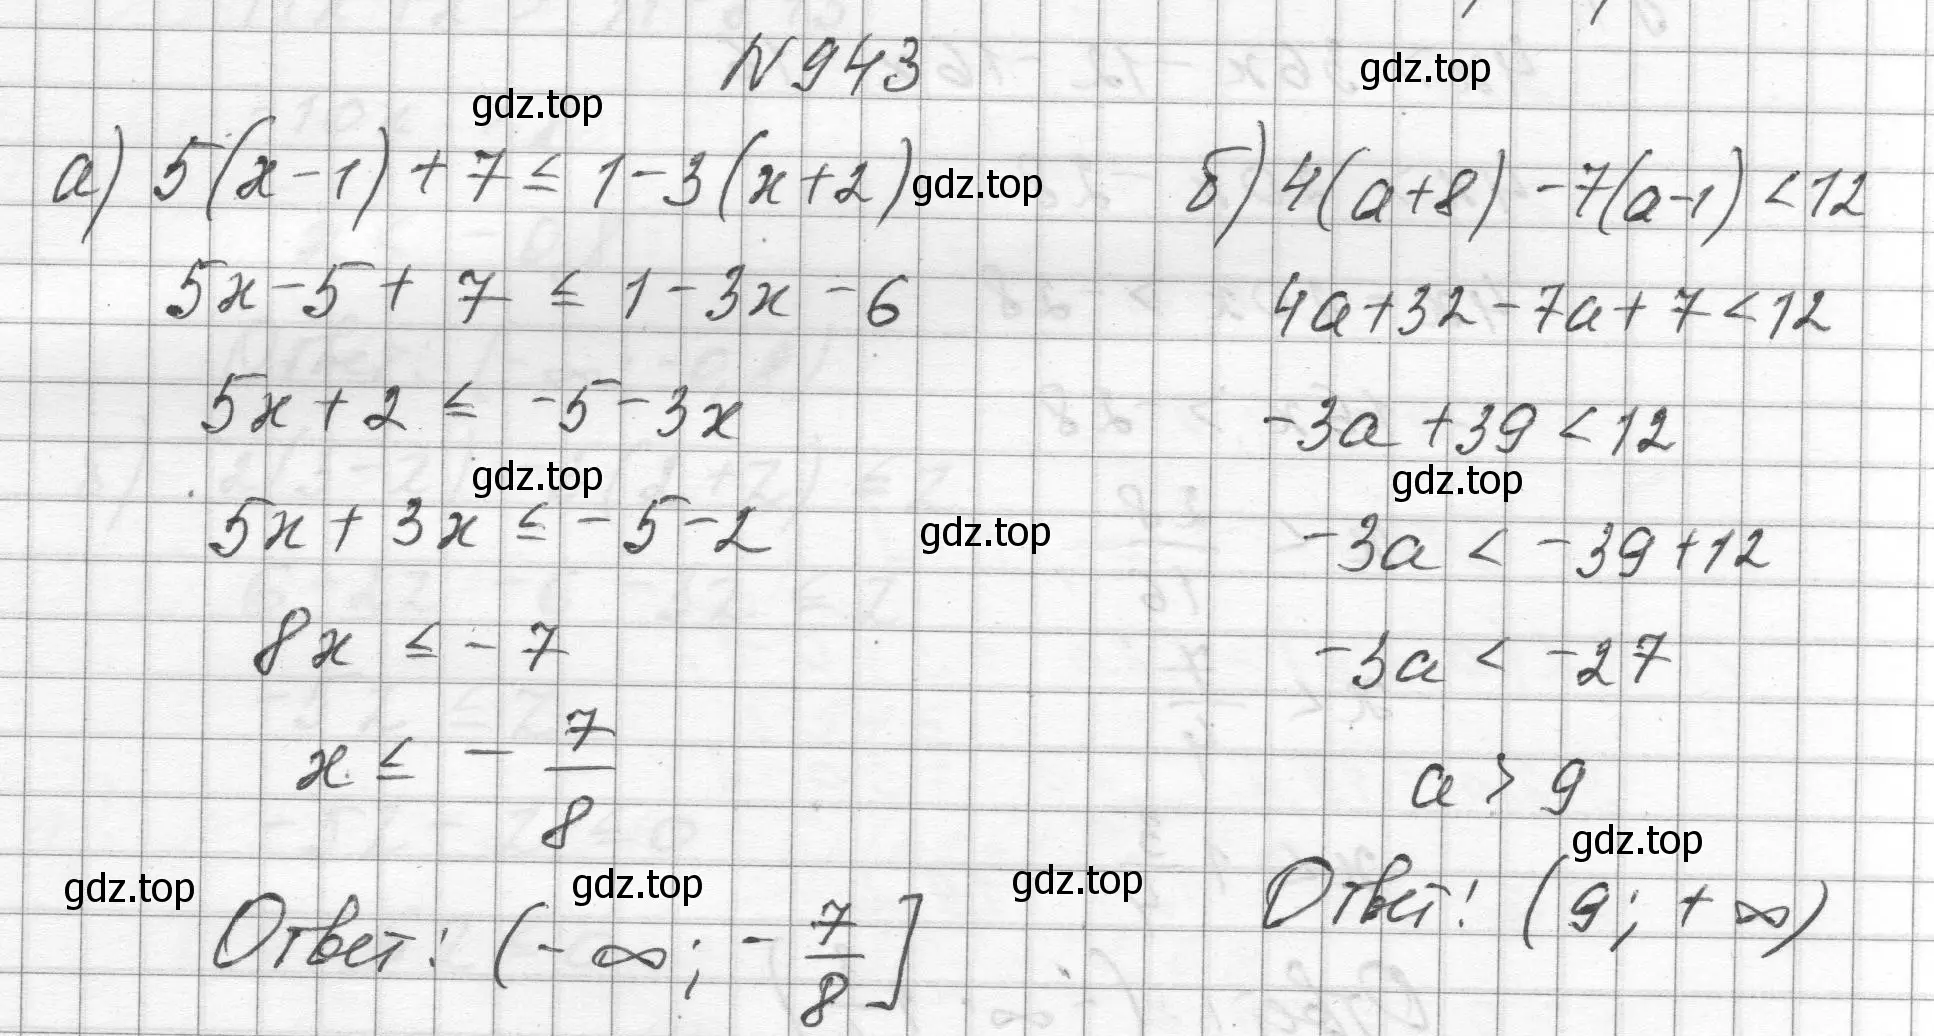 N 943
gdz.top
gdz.top
а) 5(x-1)+7 ≤ 1-3(x+2)
gdz.top
5x-5+7 ≤ 1-3x-6
5x+2 ≤ -5-3x
gdz.top
5x+3x ≤ -5-2
gdz.top
8x ≤ -7
x ≤ -7/8
gdz.top
gdz.top
gdz.top
Ответ: (-∞; -7/8]
б) 4(a+8)-7(a-1)<12
4a+32-7a+7<12
-3a+39<12
gdz.top
-3a < -39+12
-3a < -27
a > 9
gdz.top
Ответ: (9; +∞)